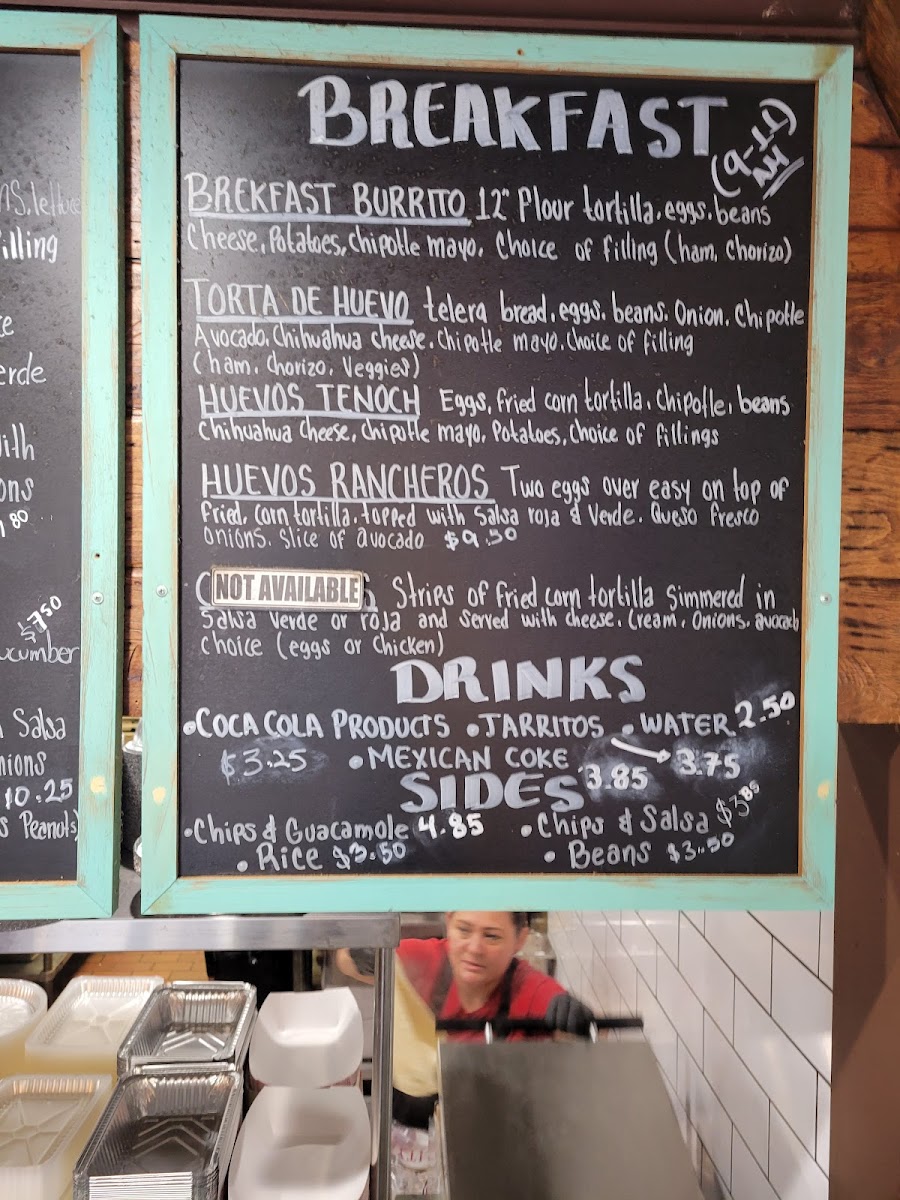 ns, lettuce
illing
ce
erde
with
ons
80
$7.50
ucumber
Salsa
nions
10.25
s Peanuts)
BREAKFAST
(9-11)
AM
BREKFAST BURRITO 12" Plour tortilla, eggs, beans
Cheese, Potatoes, chipotle mayo, Choice of filling (ham, chorizo)
TORTA DE HUEVO telera bread, eggs, beans, Onion, Chipotle
Avocado, Chihuahua cheese, Chipotle mayo, Choice of filling
(ham, Chorizo, Veggies)
HUEVOS TENOCH Eggs, fried corn tortilla, Chipotle, beans
Chihuahua Cheese, Chipotle mayo, Potatoes, Choice of fillings
HUEVOS RANCHEROS Two eggs over easy on top of
fried, corn tortilla, topped with Salsa roja & Verde. Queso fresco
onions, slice of avocado $9.50
NOT AVAILABLE Strips of fried corn tortilla simmered in
Salsa Verde or roja and served with cheese, Cream, Onions, avocado
choice (eggs or chicken)
DRINKS
•COCA COLA PRODUCTS •JARRITOS •WATER 2.50
$3.25 •MEXICAN COKE 3.85 3.75
SIDES
•Chips & Guacamole 4.85 •Chips & Salsa $3.85
•Rice $3.50 •Beans $3.50